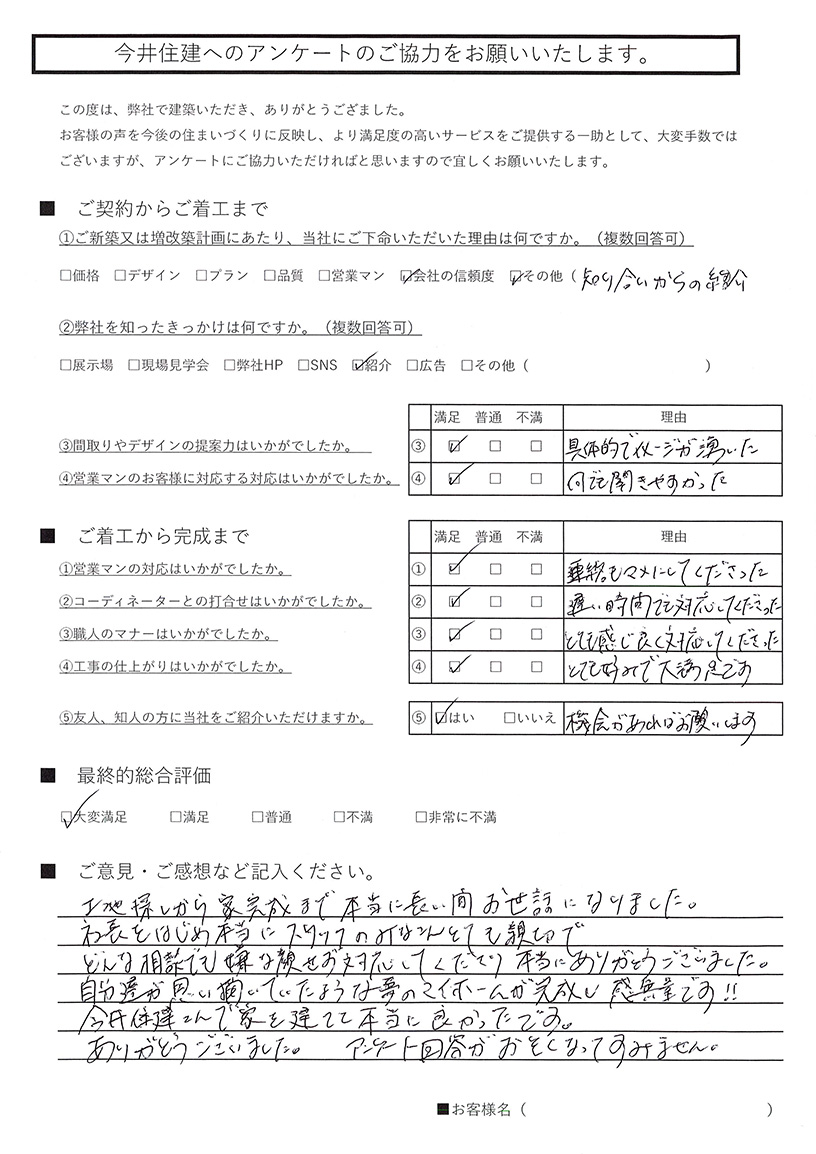 今井住建へのアンケートのご協力をお願いいたします。
この度は、弊社で建築いただき、ありがとうござました。
お客様の声を今後の住まいづくりに反映し、より満足度の高いサービスをご提供する一助として、大変手数では
ございますが、アンケートにご協力いただければと思いますので宜しくお願いいたします。
■ ご契約からご着工まで
①ご新築又は増改築計画にあたり、当社にご下命いただいた理由は何ですか。（複数回答可）
□価格 □デザイン □プラン □品質 □営業マン ☑会社の信頼度 ☑その他（知り合いからの紹介
②弊社を知ったきっかけは何ですか。（複数回答可）
□展示場 □現場見学会 □弊社HP □SNS ☑紹介 □広告 □その他（ ）
満足 普通 不満 理由
③間取りやデザインの提案力はいかがでしたか。 ③ ☑ □ □ 具体的でイメージが湧いた
④営業マンのお客様に対応する対応はいかがでしたか。 ④ ☑ □ □ 何でも聞きやすかった
■ ご着工から完成まで 満足 普通 不満 理由
①営業マンの対応はいかがでしたか。 ① ☑ □ □ 連絡もマメにしてくださった
②コーディネーターとの打合せはいかがでしたか。 ② ☑ □ □ 遅い時間でも対応してくださった
③職人のマナーはいかがでしたか。 ③ ☑ □ □ とても感じ良く対応してくださった
④工事の仕上がりはいかがでしたか。 ④ ☑ □ □ とても好みで大満足です
⑤友人、知人の方に当社をご紹介いただけますか。 ⑤ ☑はい □いいえ 機会があればお願いします
■ 最終的総合評価
☑大変満足 □満足 □普通 □不満 □非常に不満
■ ご意見・ご感想など記入ください。
土地探しから家完成まで本当に長い間お世話になりました。
社長をはじめ本当にスタッフのみなさんとても親切で
どんな相談でも嫌な顔せず対応してくださり本当にありがとうございました。
自分達が思い描いていたような夢のマイホームが完成し感無量です!!
今井住建さんで家を建てて本当に良かったです。
ありがとうございました。 アンケート回答がおそくなってすみません。
■お客様名（ ）